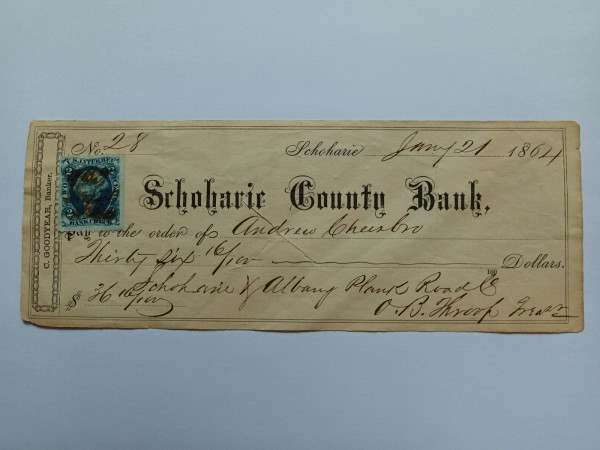 No. 28
Schoharie Jany 21 1864
C. GOODYEAR, Banker.
U.S. INTER. REV.
BANK CHECK
Schoharie County Bank.
Pay to the order of Andrew Cheesbro
Thirty six 16/100 100 Dollars.
$36 16/100 Schoharie & Albany Plank Road Co
O. B. Throop Treasr